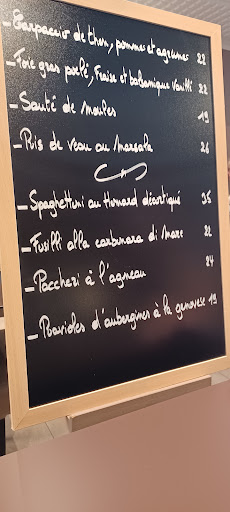 - Carpaccio de thon, pommes et agrumes 22
- Foie gras poêlé, Fraise et balsamique vanillé 22
- Sauté de moules 19
- Ris de veau au marsala 26
- Spaghettoni au Homard décortiqué 35
- Fusilli alla carbonara di mare 22
- Paccheri à l'agneau 24
- Ravioles d'aubergines à la genovese 19